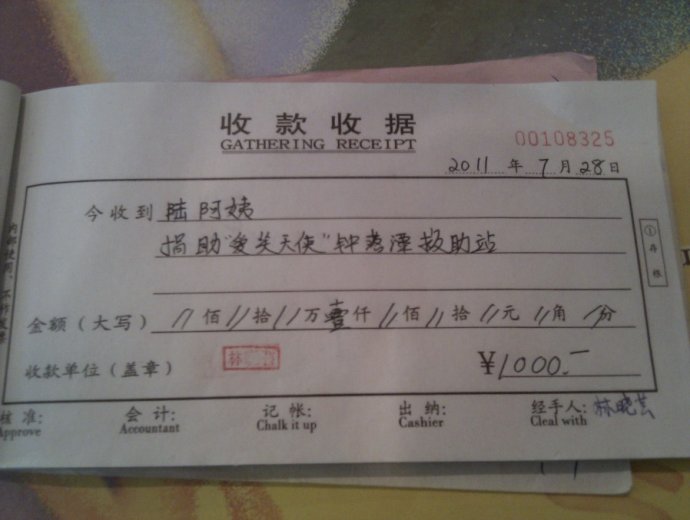 收款收据
GATHERING RECEIPT
00108325
2011年7月28日
今收到 陆阿姨
捐助"爱笑天使"钟落潭救助站
金额（大写） // 佰 // 拾 // 万 壹 仟 // 佰 // 拾 // 元 // 角 / 分
收款单位（盖章） 林 ¥1000.-
核准: 会计: 记帐: 出纳: 经手人: 林晓芸
Approve Accountant Chalk it up Cashier Cleal with
① 存根